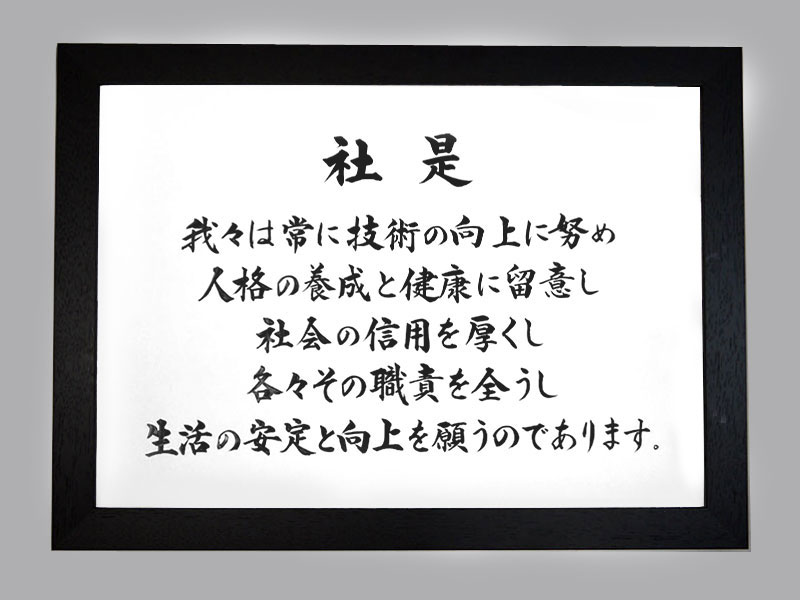 社 是
我々は常に技術の向上に努め
人格の養成と健康に留意し
社会の信用を厚くし
各々その職責を全うし
生活の安定と向上を願うのであります。